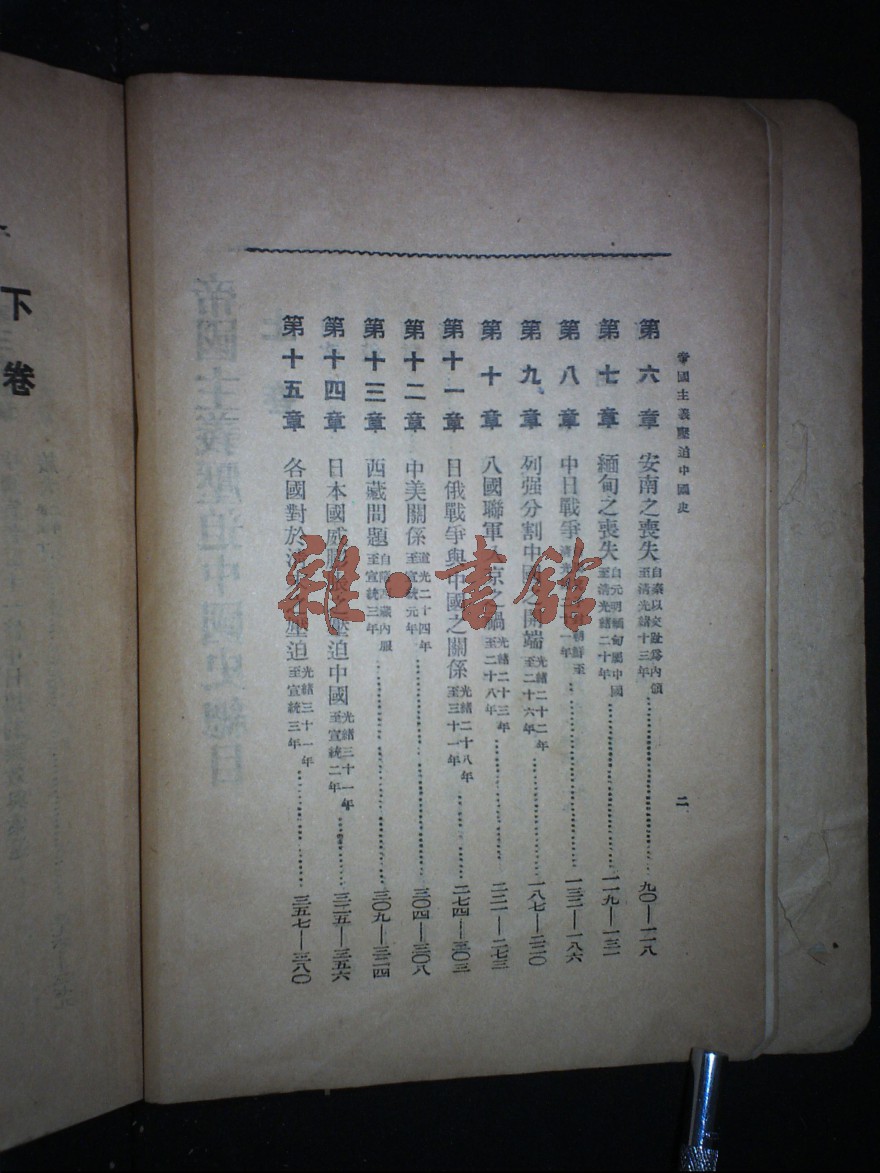 帝國主義壓迫中國史
二
第六章 安南之喪失 自秦以交趾爲內領至清光緒十三年 九〇—一一八
第七章 緬甸之喪失 自元明緬甸屬中國至清光緒二十年 一一九—一三一
第八章 中日戰爭 一三二—一八六
第九章 列强分割中國之開端 光緒二十二年至二十六年 一八七—二二〇
第十章 八國聯軍 京之禍 光緒二十三年至二十八年 二二一—二七三
第十一章 日俄戰爭與中國之關係 光緒二十八年至三十一年 二七四—三〇三
第十二章 中美關係 道光二十四年至宣統元年 三〇四—三〇八
第十三章 西藏問題 至宣統三年 三〇九—三二四
第十四章 日本國威 之壓迫中國 光緒三十一年至宣統二年 三二五—三五六
第十五章 各國對於 壓迫 光緒三十一年至宣統三年 三五七—三八〇
下卷
雜·書館